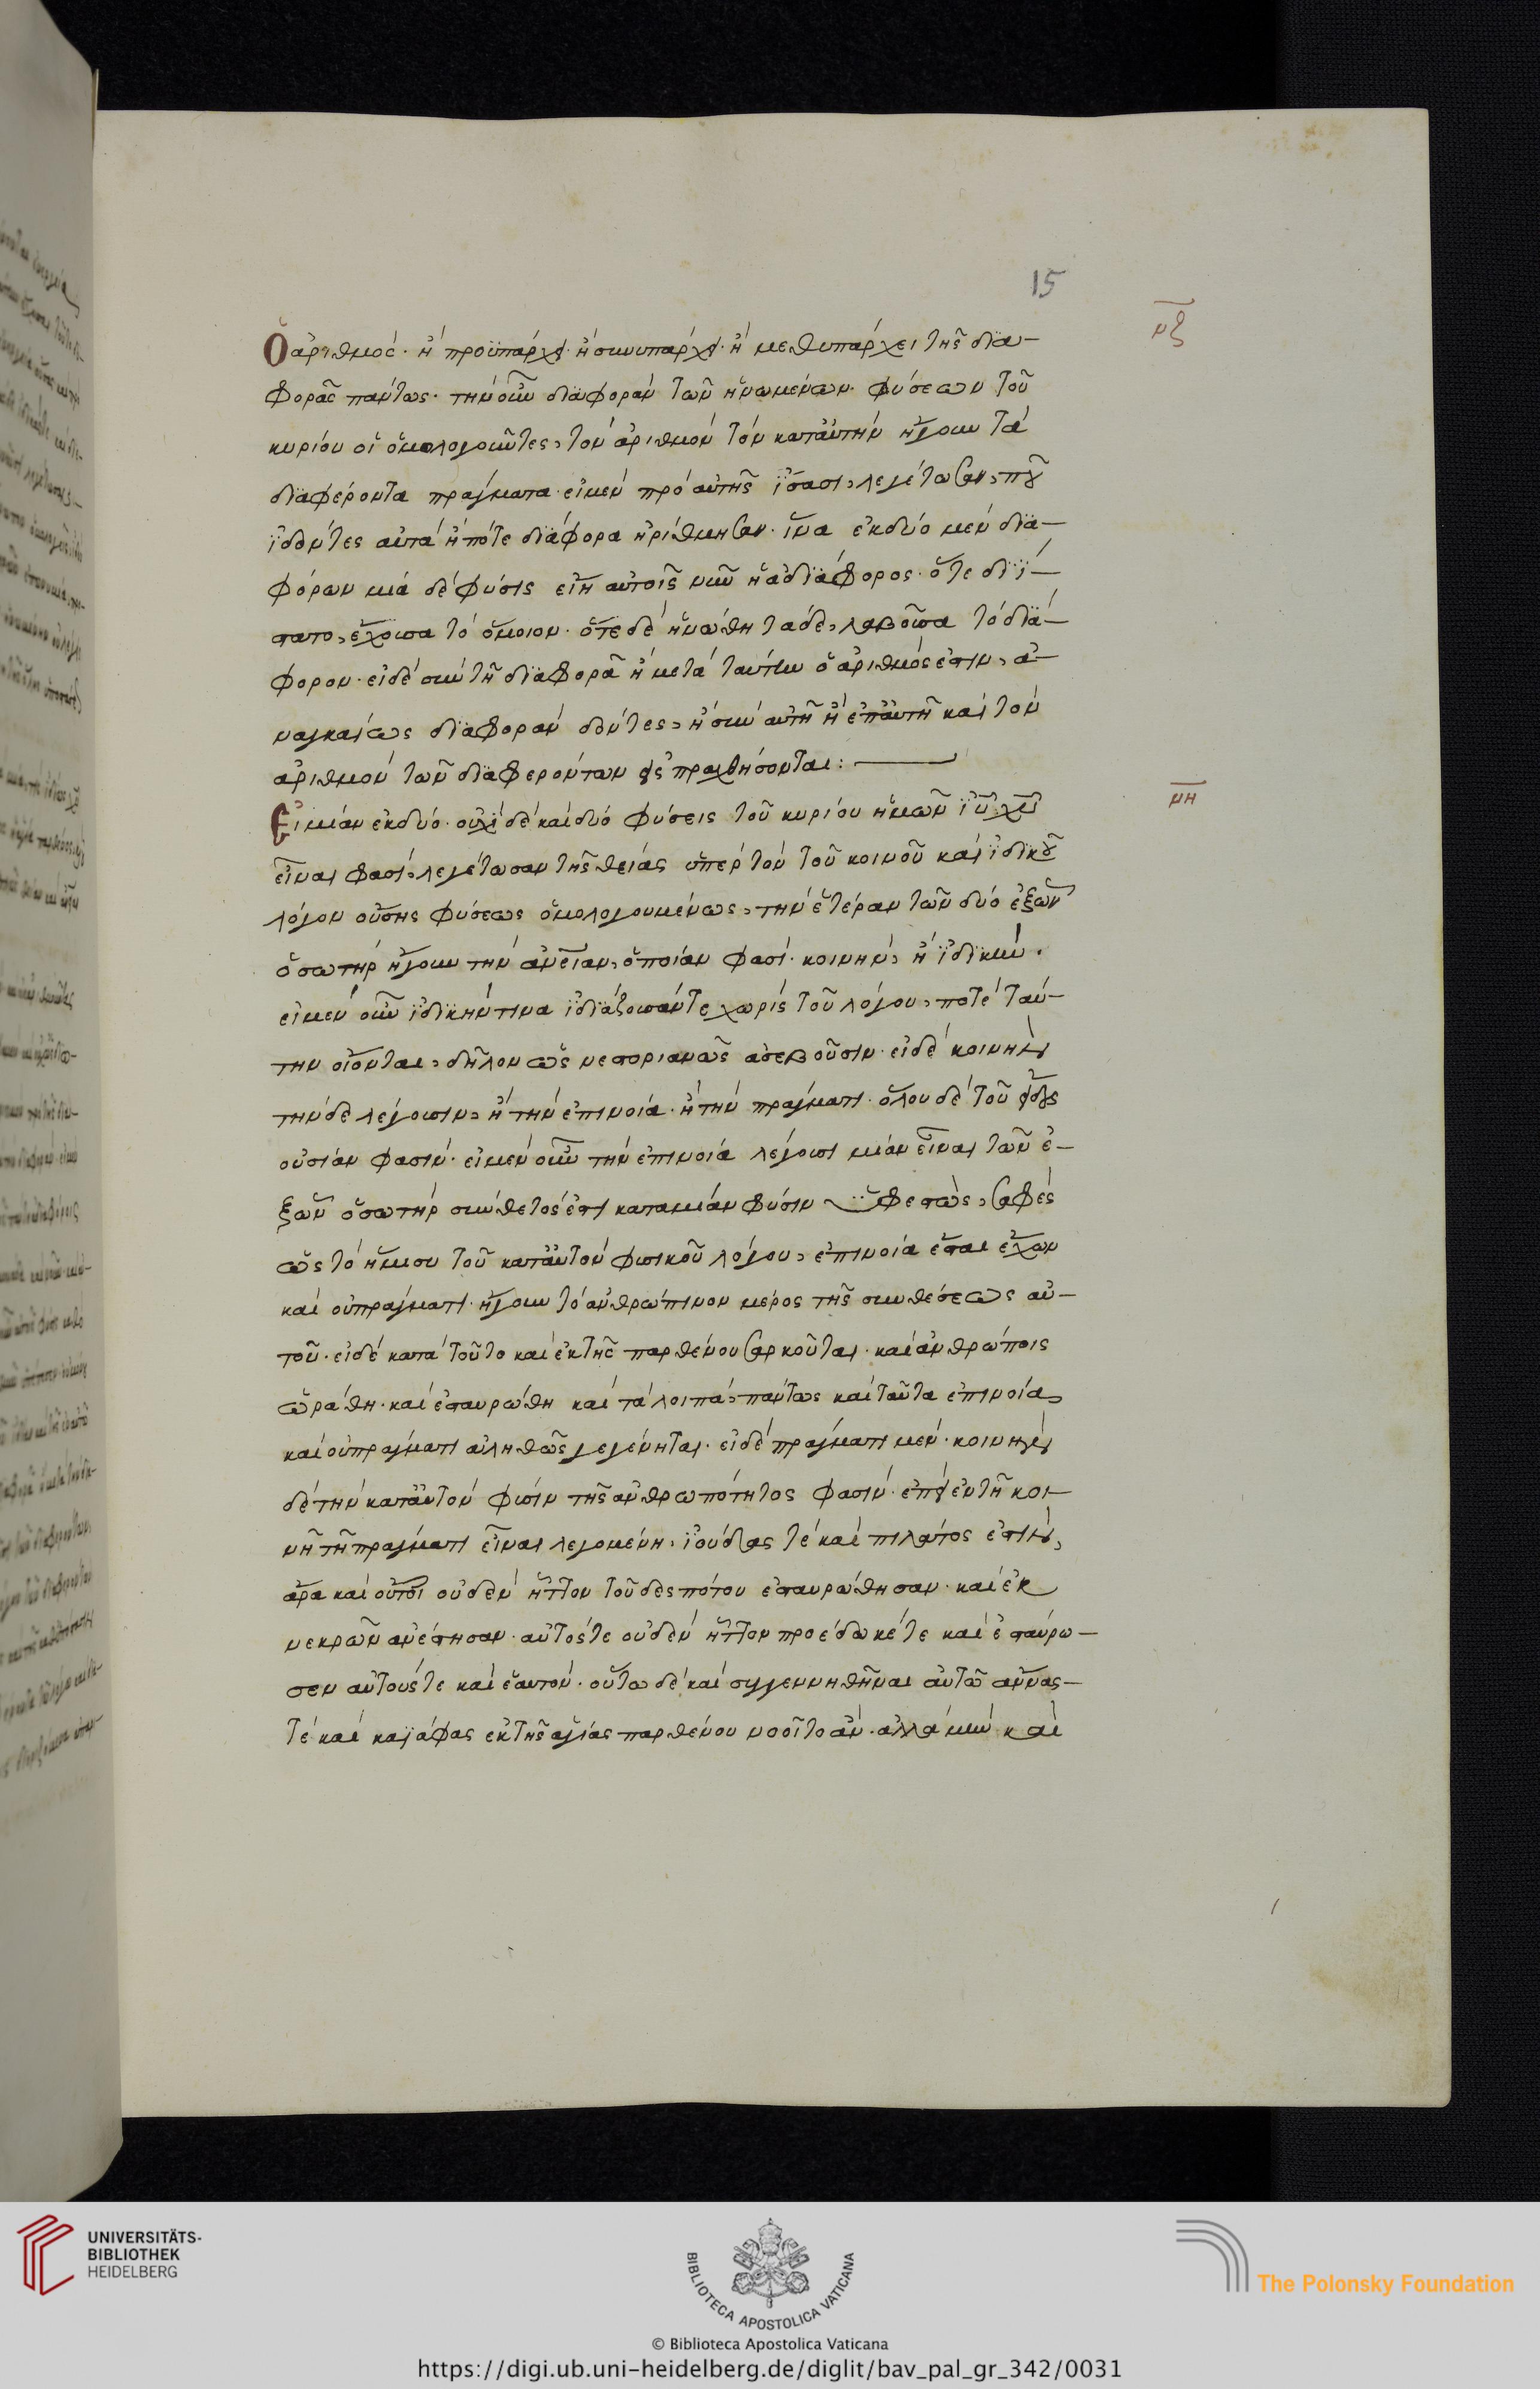 15
μζ
Ὁ ἀριθμός· ἢ προϋπάρχει· ἢ συνυπάρχει· ἢ μεθυπάρχει τῆς δια-
φορᾶς πάντως· τὴν οὖν διαφορὰν τῶν ἡνωμένων φύσεων τοῦ
κυρίου οἱ ὁμολογοῦντες, τὸν ἀριθμὸν τὸν κατ' αὐτὴν ἤγουν τὰ
διαφέροντα πράγματα· εἰ μὲν πρὸ αὐτῆς ἴσασι, λεγέτωσαν, ποῦ
ἰδόντες αὐτὰ ἢ πότε διάφορα ἠρίθμησαν· ἵνα ἐκ δύο μὲν δια-
φόρων μία δὲ φύσις εἴη αὐτοῖς νῦν ἡ ἀδιάφορος· ὅτε διΐ-
στατο, ἔχουσα τὸ ὅμοιον· ὅτε δὲ ἡνώθη τάδε, λαβοῦσα τὸ διά-
φορον· εἰ δὲ σὺν τῇ διαφορᾷ ἢ μετὰ ταύτην ὁ ἀριθμός ἐστιν, ἀ-
ναγκαίως διαφορὰν δόντες, ἢ σὺν αὐτῇ ἢ ἐπ' αὐτῇ καὶ τὸν
ἀριθμὸν τῶν διαφερόντων εἰσπραχθήσονται:
μη
Εἰ μίαν ἐκ δύο· οὐχὶ δὲ καὶ δύο φύσεις τοῦ κυρίου ἡμῶν ἰυ χυ
εἶναι φασὶ, λεγέτωσαν τῆς θείας ὑπὲρ τὸν τοῦ κοινοῦ καὶ ἰδικοῦ
λόγον οὔσης φύσεως ὁμολογουμένως, τὴν ἑτέραν τῶν δύο ἐξ ὧν
ὁ σωτὴρ ἤγουν τὴν ἀνείαν, ὁποίαν φασὶ· κοινὴν, ἢ ἰδικὴν·
εἰ μὲν οὖν ἰδικήν τινα ἰδιάζουσάν τε χωρὶς τοῦ λόγου, ποτὲ ταύ-
την οἴονται, δῆλον ὡς νεστοριανῶς ἀσεβοῦσιν· εἰ δὲ κοινὴν
τήνδε λέγουσιν, ἢ τὴν ἐπινοίᾳ· ἢ τὴν πράγματι· ὅλου δὲ τοῦ εἴδους
οὐσίαν φασίν· εἰ μὲν οὖν τὴν ἐπινοίᾳ λέγουσι μίαν εἶναι τῶν ἐ-
ξ ὧν ὁ σωτὴρ σύνθετός ἐστι κατὰ μίαν φύσιν ὑφεστὼς, σαφὲς
ὡς τὸ ἥμισυ τοῦ κατ' αὐτὸν φυσικοῦ λόγου, ἐπινοίᾳ ἔσται ἔχων
καὶ οὐ πράγματι· ἤγουν τὸ ἀνθρώπινον μέρος τῆς συνθέσεως αὐ-
τοῦ· εἰ δὲ κατὰ τοῦτο καὶ ἐκ τῆς παρθένου σαρκοῦται· καὶ ἀνθρώποις
ὡράθη· καὶ ἐσταυρώθη καὶ τὰ λοιπὰ, πάντως καὶ ταῦτα ἐπινοίᾳ,
καὶ οὐ πράγματι ἀληθῶς γεγένηται· εἰ δὲ πράγματι μὲν· κοινὴν
δὲ τὴν κατ' αὐτὸν φύσιν τῆς ἀνθρωπότητος φασίν· ἐπεὶ ἐν τῇ κοι-
νῇ τῇ πράγματι εἶναι λεγομένῃ, ἰούδας τὲ καὶ πιλάτος ἐστὶν,
ἄρα καὶ οὗτοι οὐδὲν ἧττον τοῦ δεσπότου ἐσταυρώθησαν· καὶ ἐκ
νεκρῶν ἀνέστησαν· αὐτός τε οὐδὲν ἧττον προέδωκέ τε καὶ ἐσταύρω-
σεν αὐτούς τε καὶ ἑαυτόν· οὕτω δὲ καὶ συγγεννηθῆναι αὐτῷ ἄννας
τὲ καὶ καϊάφας ἐκ τῆς ἁγίας παρθένου νοοῖτο ἂν· ἀλλὰ μὴν καὶ
UNIVERSITÄTS-
BIBLIOTHEK
HEIDELBERG
BIBLIOTECA APOSTOLICA VATICANA
The Polonsky Foundation
© Biblioteca Apostolica Vaticana
https://digi.ub.uni-heidelberg.de/diglit/bav_pal_gr_342/0031